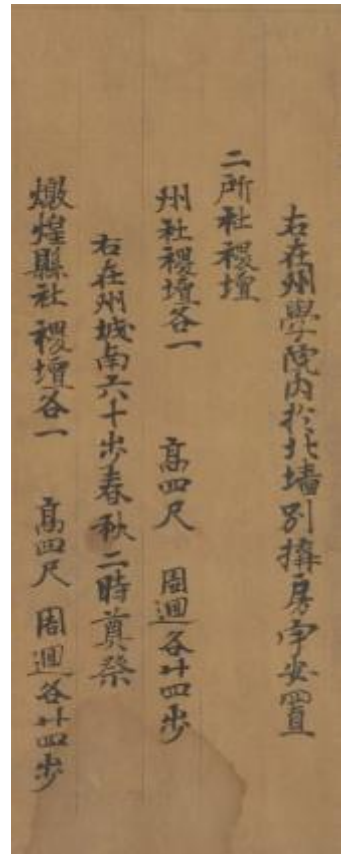 右在州學院内於北墙別搆房宇安置
二所社稷壇
州社稷壇各一　高四尺　周迴各廿四步
右在州城南六十步春秋二時奠祭
燉煌縣社稷壇各一　高四尺　周迴各廿四步